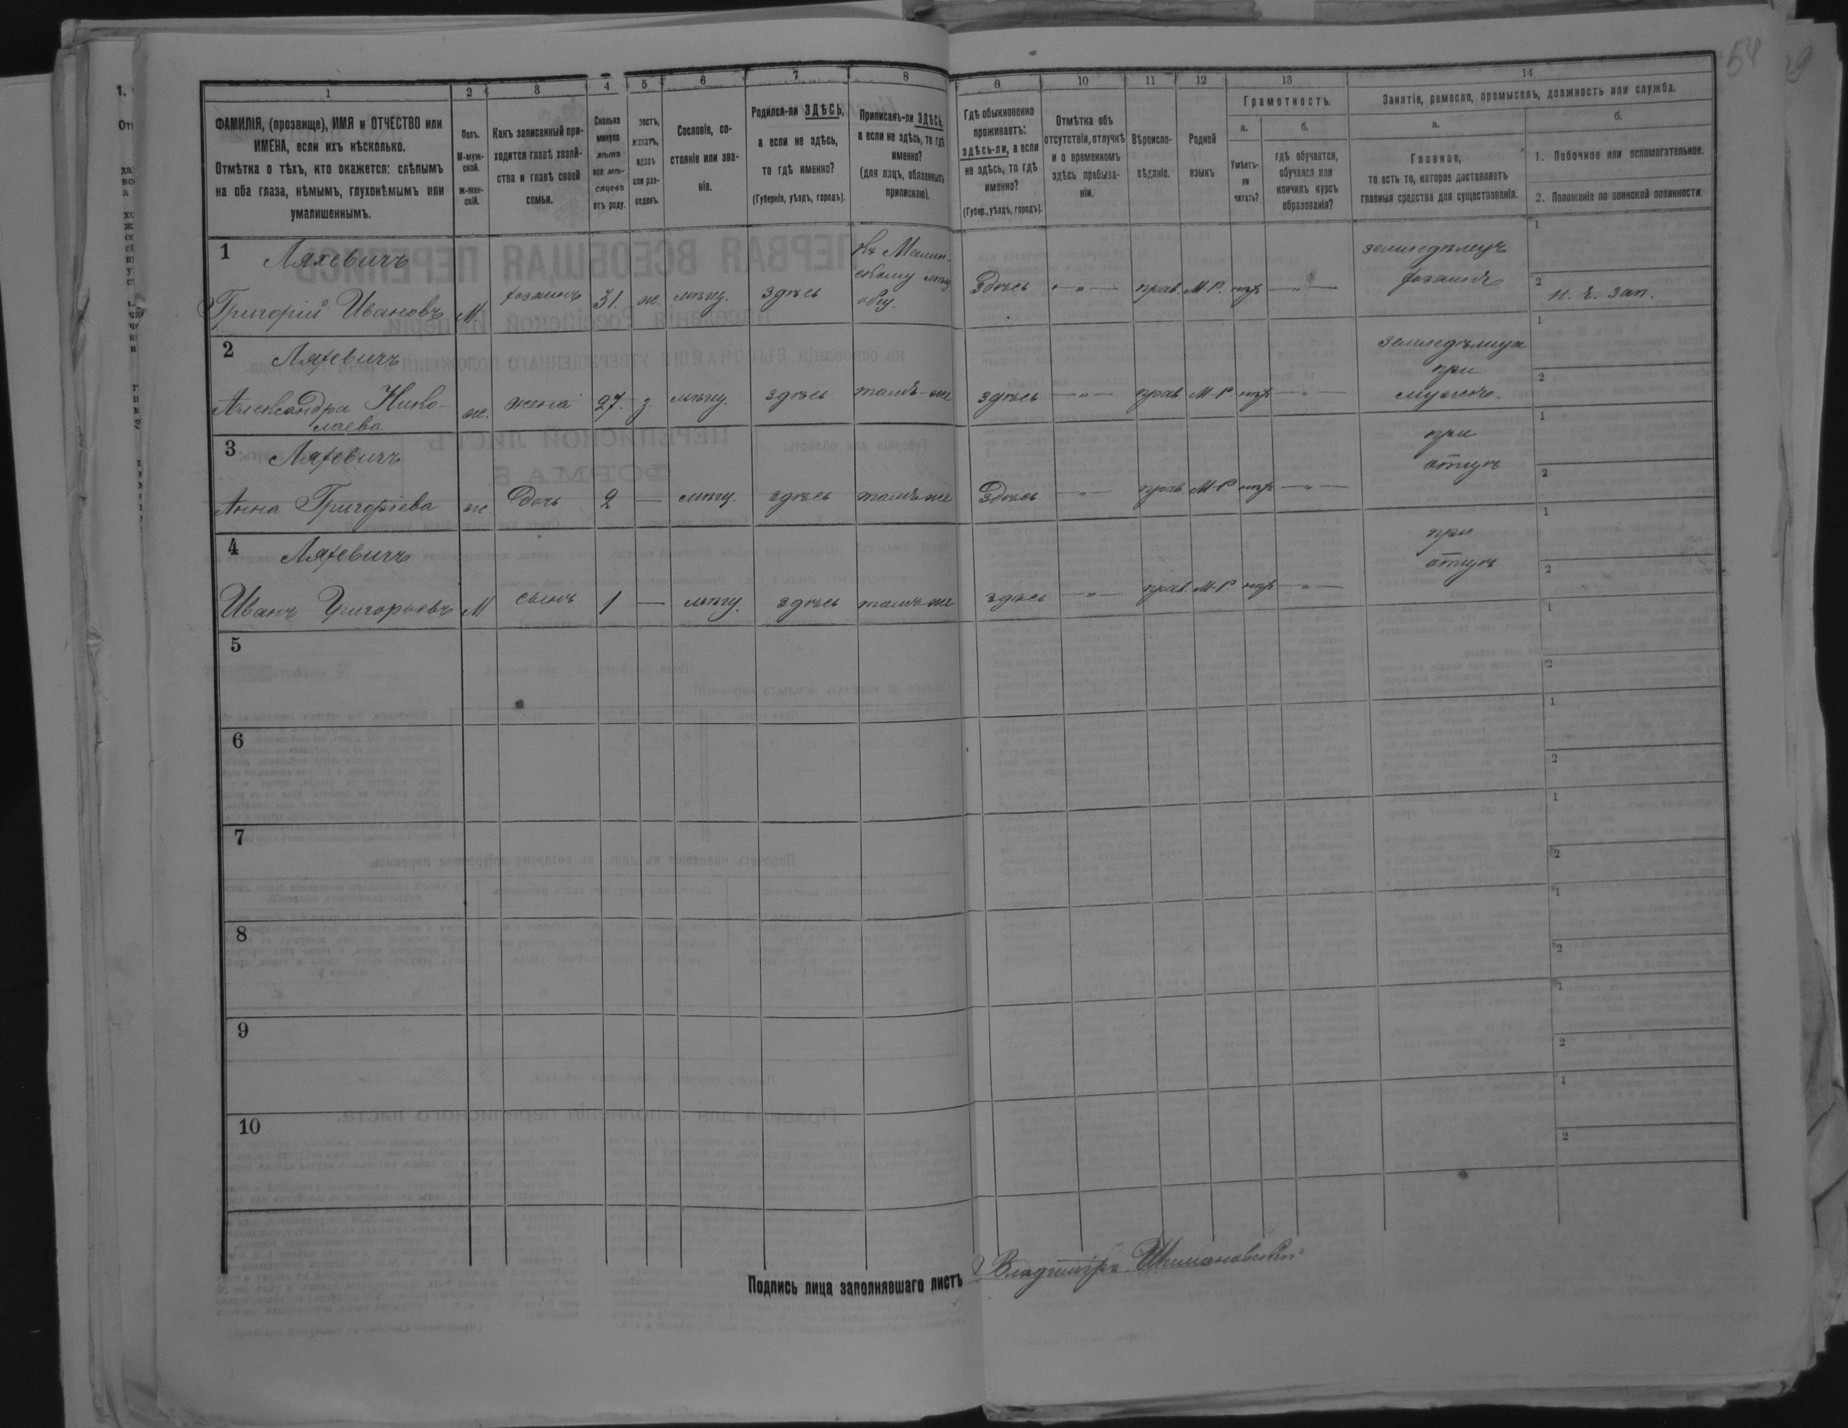 54
1 2 3 4 5 6 7 8 9 10 11 12 13 14
ФАМИЛІЯ, (прозвище), ИМЯ и ОТЧЕСТВО или
ИМЕНА, если ихъ нѣсколько.
Отмѣтка о тѣхъ, кто окажется: слѣпымъ
на оба глаза, нѣмымъ, глухонѣмымъ или
умалишеннымъ.
Полъ.
М-муж-
ской.
ж-жен-
скій.
Какъ записанный при-
ходится главѣ хозяй-
ства и главѣ своей
семьи.
Сколько
минуло
лѣтъ
или мѣ-
сяцевъ
отъ роду.
холостъ,
женатъ,
вдовъ
или раз-
веденъ.
Сословіе, со-
стояніе или зва-
ніе.
Родился-ли ЗДѢСЬ,
а если не здѣсь,
то гдѣ именно?
(Губернія, уѣздъ, городъ).
Приписанъ-ли ЗДѢСЬ,
а если не здѣсь, то гдѣ
именно?
(для лицъ, обязанныхъ
припискою).
Гдѣ обыкновенно
проживаетъ:
здѣсь-ли, а если
не здѣсь, то гдѣ
именно?
(Губер., уѣздъ, городъ).
Отмѣтка объ
отсутствіи, отлучкѣ
и о временномъ
здѣсь пребыва-
ніи.
Вѣроиспо-
вѣданіе.
Родной
языкъ
Грамотность.
а. б.
Умѣетъ-
ли
читать?
гдѣ обучается,
обучался или
кончилъ курсъ
образованія?
Занятіе, ремесло, промыселъ, должность или служба.
а. б.
Главное,
то есть то, которое доставляетъ
главныя средства для существованія.
1. Побочное или вспомогательное.
2. Положеніе по воинской повинности.
1 Ляхевичъ
Григорій Ивановъ М. хозяинъ 31 ж. мѣщ. здѣсь
Здѣсь — „ — прав. М-Р. — „ —
земледѣлецъ
хозяинъ
1
2 н. ч. зап.
2 Ляхевичъ
Александра Нико-
лаева ж. жена 27. з. мѣщ. здѣсь тамъ-же
здѣсь — „ — прав М-Р — „ —
при
мужѣ.
1
2
3 Ляхевичъ
Анна Григорьева ж дочь 2 — мѣщ. здѣсь тамъ же
Здѣсь — „ — прав М-Р. — „ —
при
отцѣ
1
2
4 Ляхевичъ
Иванъ Григорьевъ М сынъ 1 — мѣщ. здѣсь тамъ же
здѣсь — „ — прав. М-Р. — „ —
при
отцѣ
1
2
5
1
2
6
1
2
7
1
2
8
1
2
9
1
2
10
1
2
Подпись лица заполнявшаго листъ Владиміръ